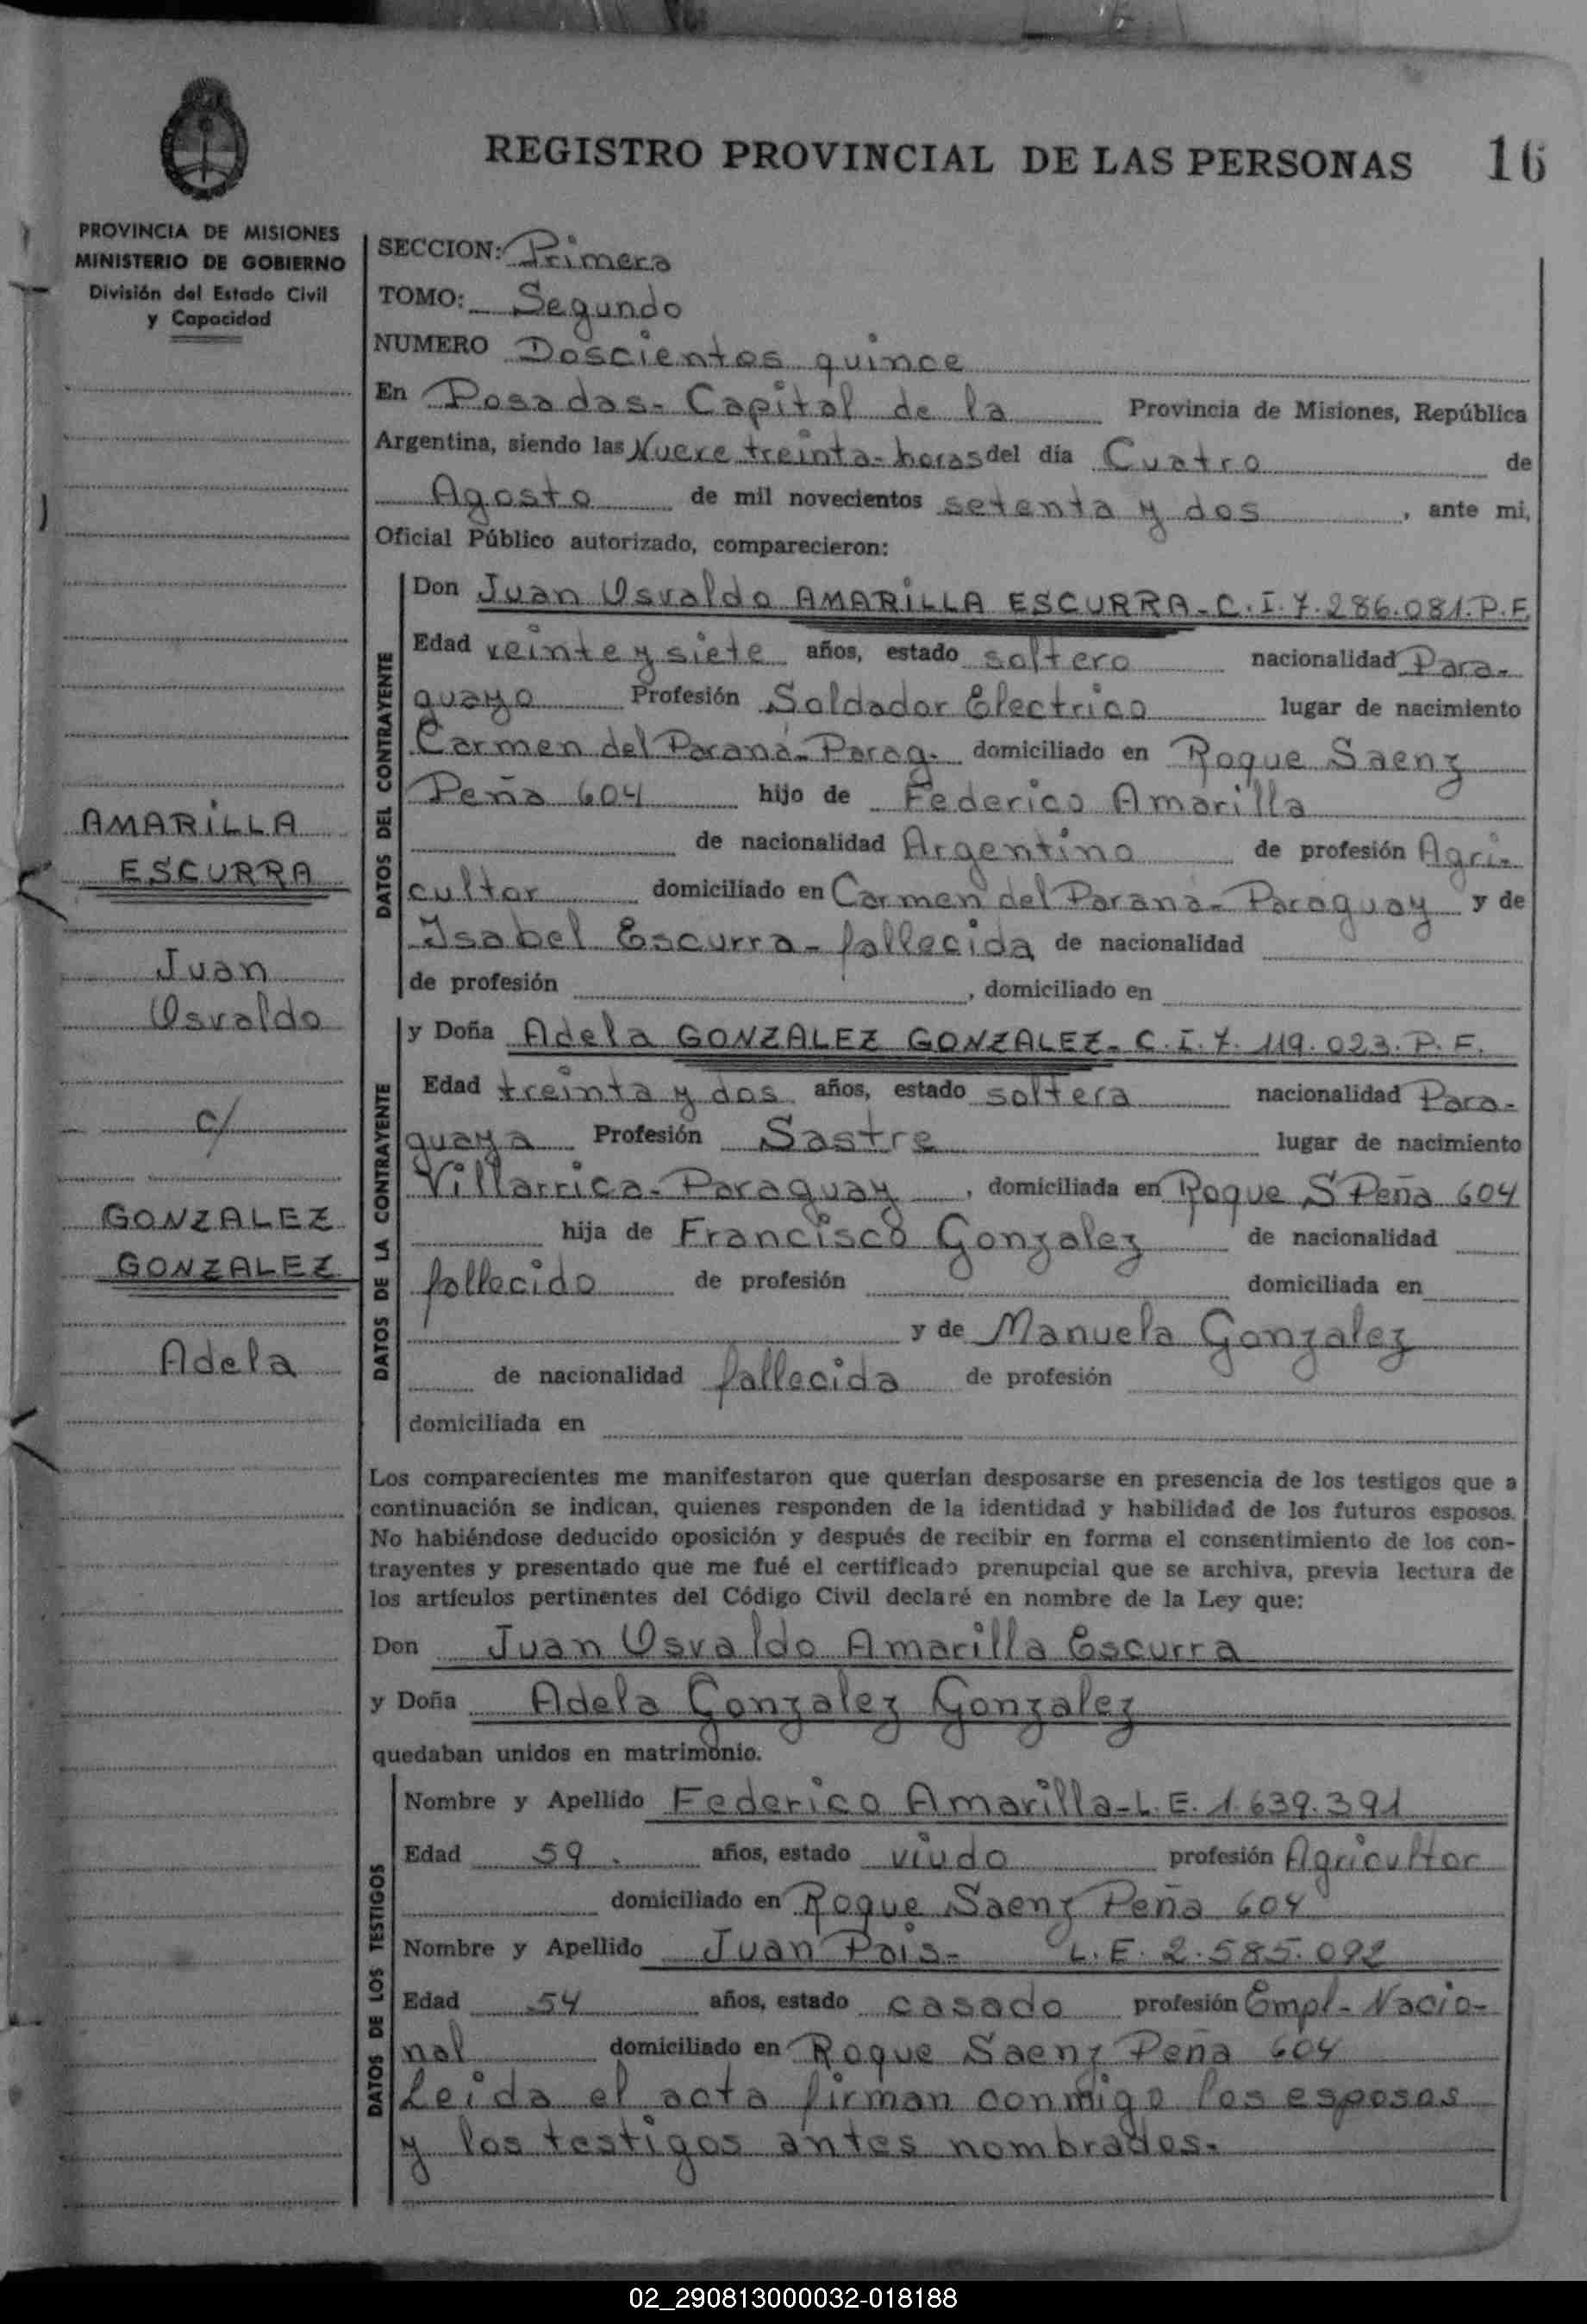 REGISTRO PROVINCIAL DE LAS PERSONAS 16
PROVINCIA DE MISIONES
MINISTERIO DE GOBIERNO
División del Estado Civil
y Capacidad
AMARILLA
ESCURRA
Juan
Osvaldo
c/
GONZALEZ
GONZALEZ
Adela
SECCION: Primera
TOMO: Segundo
NUMERO Doscientos quince
En Posadas - Capital de la Provincia de Misiones, República
Argentina, siendo las Nueve treinta - horas del día Cuatro de
Agosto de mil novecientos setenta y dos, ante mi,
Oficial Público autorizado, comparecieron:
DATOS DEL CONTRAYENTE
Don Juan Osvaldo AMARILLA ESCURRA - C.I. 7.286.081. P.F.
Edad veinte y siete años, estado soltero nacionalidad Para-
guayo Profesión Soldador Electrico lugar de nacimiento
Carmen del Paraná - Parag. domiciliado en Roque Saenz
Peña 604 hijo de Federico Amarilla
de nacionalidad Argentino de profesión Agri-
cultor domiciliado en Carmen del Paraná - Paraguay y de
Isabel Escurra - fallecida de nacionalidad
de profesión , domiciliado en
DATOS DE LA CONTRAYENTE
y Doña Adela GONZALEZ GONZALEZ - C.I. 7.119.023. P.F.
Edad treinta y dos años, estado soltera nacionalidad Para-
guaya Profesión Sastre lugar de nacimiento
Villarrica - Paraguay , domiciliada en Roque S Peña 604
hija de Francisco Gonzalez de nacionalidad
fallecido de profesión domiciliada en
y de Manuela Gonzalez
de nacionalidad fallecida de profesión
domiciliada en
Los comparecientes me manifestaron que querían desposarse en presencia de los testigos que a
continuación se indican, quienes responden de la identidad y habilidad de los futuros esposos.
No habiéndose deducido oposición y después de recibir en forma el consentimiento de los con-
trayentes y presentado que me fué el certificado prenupcial que se archiva, previa lectura de
los artículos pertinentes del Código Civil declaré en nombre de la Ley que:
Don Juan Osvaldo Amarilla Escurra
y Doña Adela Gonzalez Gonzalez
quedaban unidos en matrimonio.
DATOS DE LOS TESTIGOS
Nombre y Apellido Federico Amarilla - L.E. 1.639.391
Edad 59. años, estado viudo profesión Agricultor
domiciliado en Roque Saenz Peña 604
Nombre y Apellido Juan Pois - L.E. 2.585.092
Edad 54 años, estado casado profesión Empl - Nacio-
nal domiciliado en Roque Saenz Peña 604
Leida el acta firman conmigo los esposos
y los testigos antes nombrados.
02_290813000032-018188